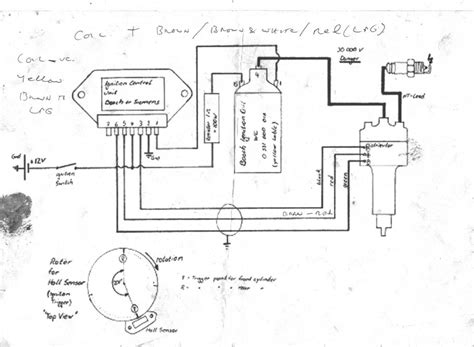 COIL + BROWN / BROWN & WHITE / Red (LAG)
COIL -ve
Yellow
BROWN
LAG
Ignition Control
Unit
Bosch or Siemens
7 6 5 4 3 2 1
Gnd
30 000 V
Danger
HT-Lead
4
Bosch Ignition Coil
(yellow lable)
Distributor
Gnd
12V
Ignition
Switch
black
green
BROWN - RED
Rotor
for
Hall Sensor
(Ignition
Trigger)
"Top View"
rotation
Hall Sensor
F = Trigger point for front cylinder
R =